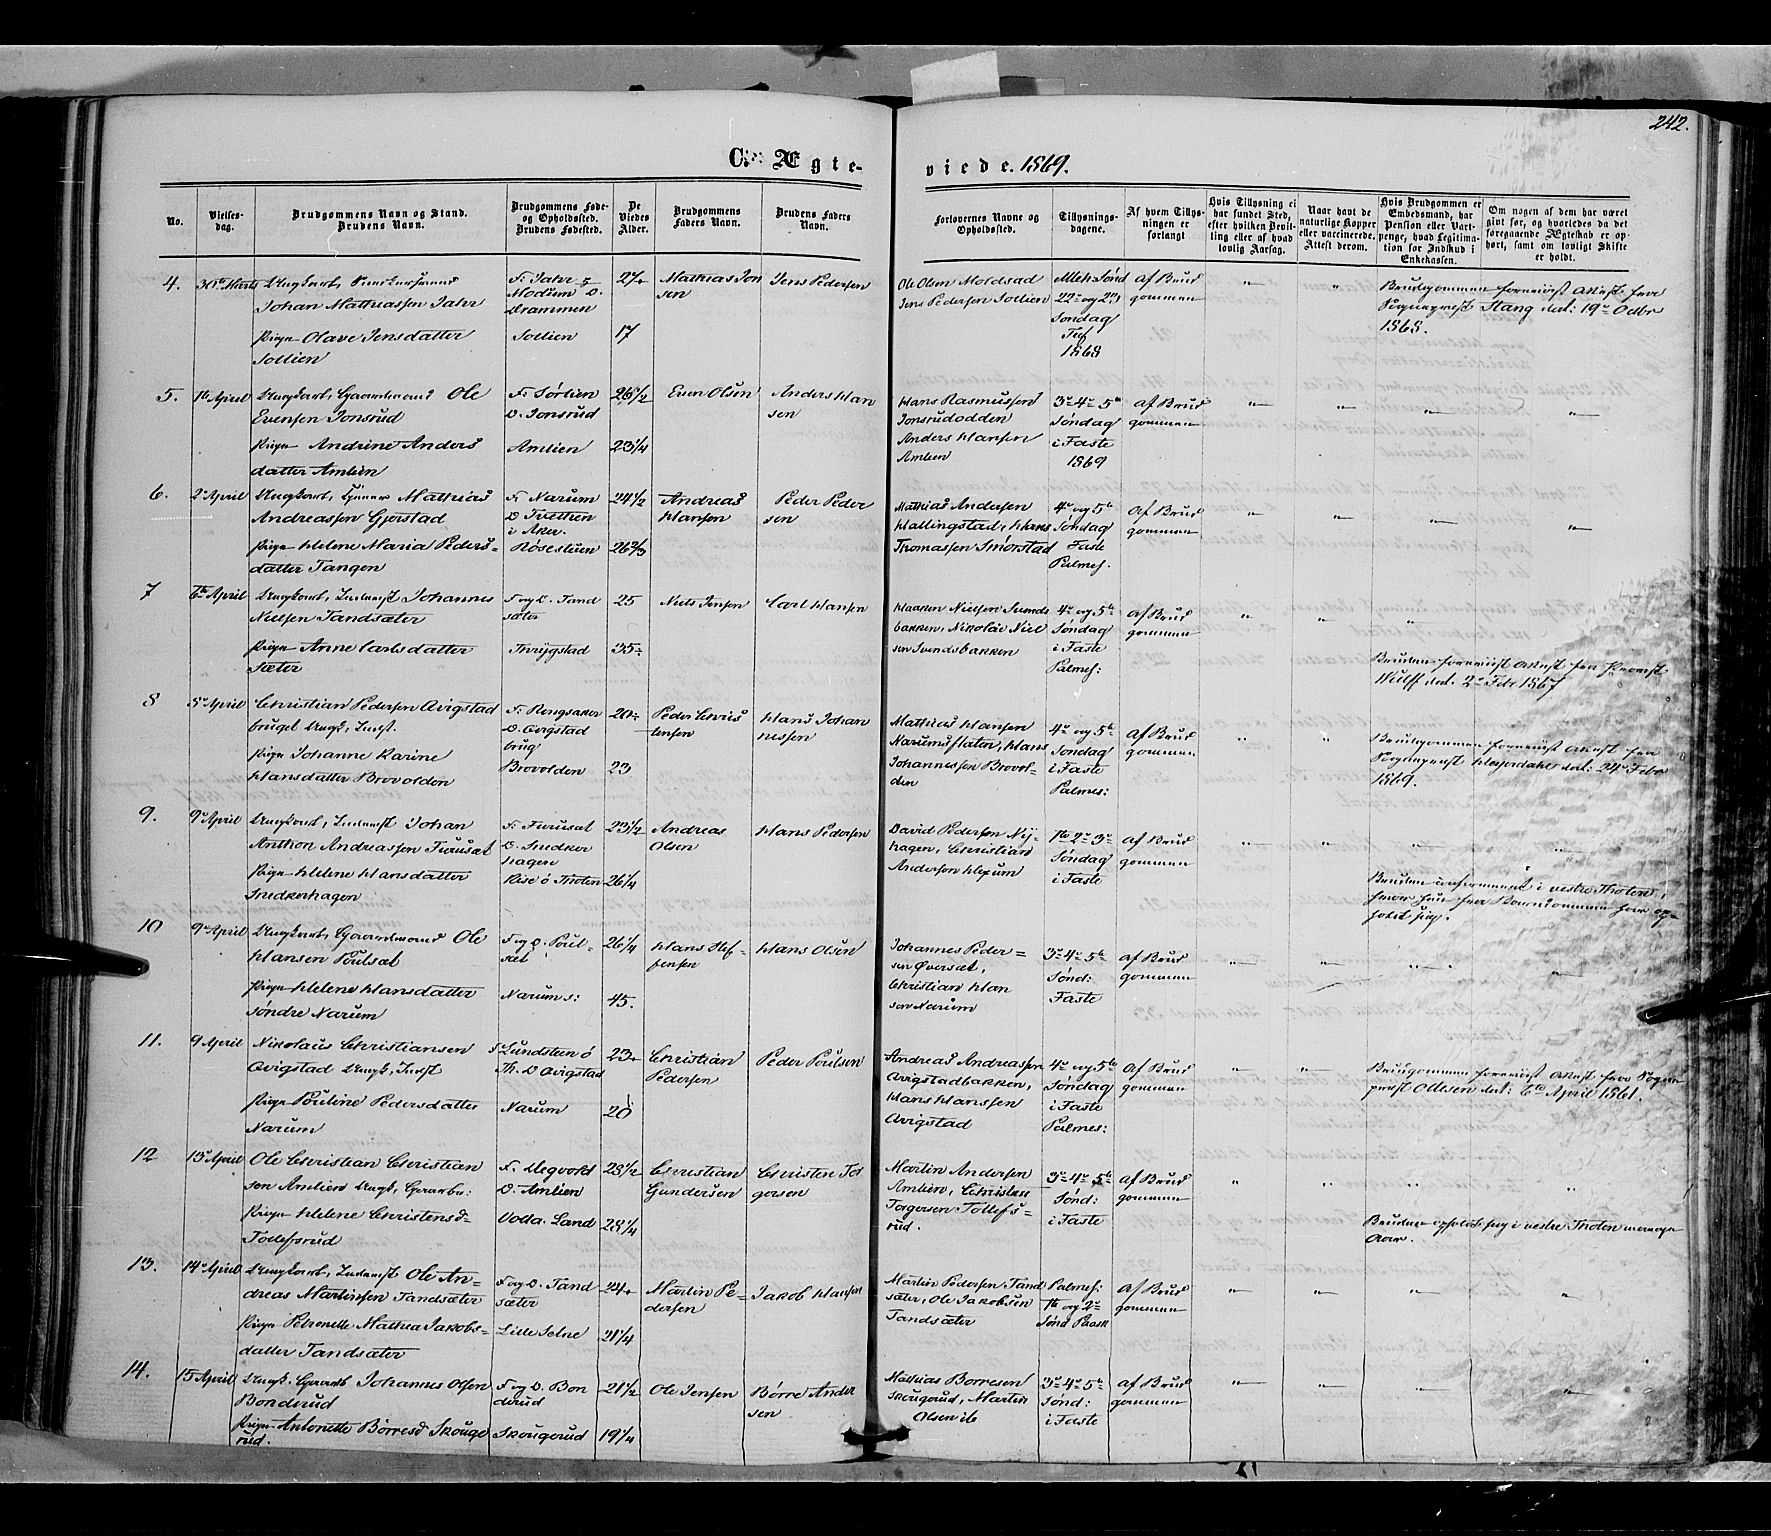 242.
C. Ægte-
viede. 1869.
No.
Vielses-
dag.
Brudgommens Navn og Stand.
Brudens Navn.
Brudgommens Føde-
og Opholdssted.
Brudens Fødested.
De
Viedes
Alder.
Brudgommens
Faders Navn.
Brudens Faders
Navn.
Forlovernes Navne og
Opholdssted.
Tillysnings-
dagene.
Af hvem Tillys-
ningen er
forlangt
Hvis Tillysning ei
har fundet Sted,
efter hvilken Bevil-
ling eller af hvad
lovlig Aarsag.
Naar havt de
naturlige Kopper
eller vaccinerede.
Attest derom.
Hvis Brudgommen er
Embedsmand, har
Pension eller Vart-
penge, hvad Legitima-
tion for Indskud i
Enkekassen.
Om nogen af dem har været
givt før, og hvorledes da det
foregaaende Ægteskab er op-
hørt, samt om lovligt Skifte
er holdt.
4.
30te Marts
Ungkarl,
Johan Mathiassen Jahr
Pige Olave Jensdatter
Sollien
F: Jahr
Modum O.
Drammen
Sollien
27
17
Mathias Jon
sen
Jens Pedersen
Ole Olsen Moldstad
Jens Pedersen Sollien
22de og 23de
Søndag
1868
af Brud
gommen
Brudgommen forevist Attest fra
Sogneprest Stang dat: 19de Octbr
1868.
5.
1te April
Ungkarl, Gaardmand Ole
Evensen Jonsrud
Pige Andrine Anders
datter Amlien
F: Sørlien
O. Jonsrud
Amlien
26 1/2
23 1/4
Even Olsen
Anders Han
sen
Hans Rasmussen
Jonsrudodden
Anders Hansen
Amlien
3de 4de 5te
Søndag
i Faste
1869
af Brud
gommen
6.
2de April
Ungkarl, Mathias
Andreassen Gjerstad
Pige Helene Maria Peders-
datter Tangen
F: Narum
O Tvetten
i Aker.
Rosestuen
24 1/2
26 2/3
Andreas
Hansen
Peder Peder
sen
Mathias Andersen
Hallingstad, Hans
Thomassen Smørstad
4de og 5te
Søndag
Faste
Palmes.
af Brud
gommen
7
6te April
Ungkarl, Inderst Johannes
Nielsen Tandsæter
Pige Anne Carlsdatter
Sæter
F og O. Tand
sæter
Thrygstad
25
35
Niels Jensen
Carl Hansen
Haaken Nielsen Svends
bakken, Nikolai Niel
sen Svendsbakken
4de og 5te
Søndag
i Faste
Palmes:
af Brud
gommen
Bruden forevist Attest fra Provst
Wulff dat: 2de Febr 1867
8
8de April
Christian Pedersen Avigstad
bruget Ungk, Inderst.
Pige Johanne Karine
Hansdatter Brovolden
F: Ringsaker
O. Avigstad
brug
Brovolden
20
23
Peder Chris
tensen
Hans Johan
nessen
Mathias Hansen
Narumsflaten, Hans
Johannessen Brovol-
den
4de og 5te
Søndag
i Faste
Palmes:
af Brud
gommen
Brudgommen forevist Attest fra
Sogneprest Hesperdahl dat: 24de Febr
1869.
9.
9de April
Ungkarl, Inderst Johan
Anthon Andreassen Furusæt
Pige Helene Hansdatter
Snedkerhagen
F: Furusæt
O. Snedker
hagen
Rise ø Thoten
23 1/2
26 1/4
Andreas
Olsen
Hans Pedersen
David Pedersen Ny-
hagen, Christian
Andersen Hexum
1te 2de 3de
Søndag
i Faste
af Brud
gommen
Bruden confirmeret i vestre Thoten,
hvor hun fra Barndommen har op-
holdt sig.
10
9de April
Ungkarl, Gaardmand Ole
Hansen Poulsæt
Pige Helene Hansdatter
søndre Narum
F og O. Poul-
sæt
Narum s:
26 1/4
45.
Hans Stef-
fensen
Hans Olsen
Johannes Peder=
sen Øversæt,
Christian Han
sen Narum
3de 4de 5te
Sønd:
Faste
af Brud
gommen
11.
9 April
Nikolaus Christiansen
Avigstad Ungk, Inderst
Pige Pouline Pedersdatter
Narum
F Lundsteen ø
Th. O Avigstad
Narum
23
20
Christian
Pedersen
Peder Poulsen
Andreas Andreassen
Avigstadbakken,
Hans Hanssen
Avigstad
4de og 5te
Søndag
i Faste
Palmes:
af Brud
gommen
Brudgommen forevist Attest fra Sogne
prest Ottesen dat: 6te April 1861.
12
13de April
Ole Christian Christian
sen Amlien Ungk,
Pige Helene Christensd=
Tollefsrud
F.
O. Amlien
Volla. Land
28 1/2
28 1/4
Christian
Gundersen
Christen Tor
gersen
Martin Andersen
Amlien, Christen
Torgersen Tollefs-
rud.
3de 4de 5te
Sønd:
i Faste
af Brud
gommen
Bruden opholdt sig i vestre Thoten
Aar.
13.
14de April
Ungkarl, Inderst Ole An=
dreas Martinsen Tandsæter
Pige Petronelle Mathea Jakobs-
datter Tandsæter
F og O. Tand
sæter
Lille Selne
24
21 1/4
Martin Pe=
dersen
Jakob Hansen
Martin Pedersen Tand
sæter, Ole Jakobsen
Tandsæter
Palmes:
1te og 2de
Sønd Paask
af Brud
gommen
14.
15 April
Ungk. Gaardb Johannes Olsen
Bonderud
Pige Antonette Børresd Skouge
rud.
F og O. Bon
derud
Skougerud
21 1/2
19 1/4
Ole Jensen
Børre Ander
sen
Mathias Borresen
Skougerud, Martin
Olsen ib
3de 4de 5te
Sønd:
i Faste
af Brud
gommen